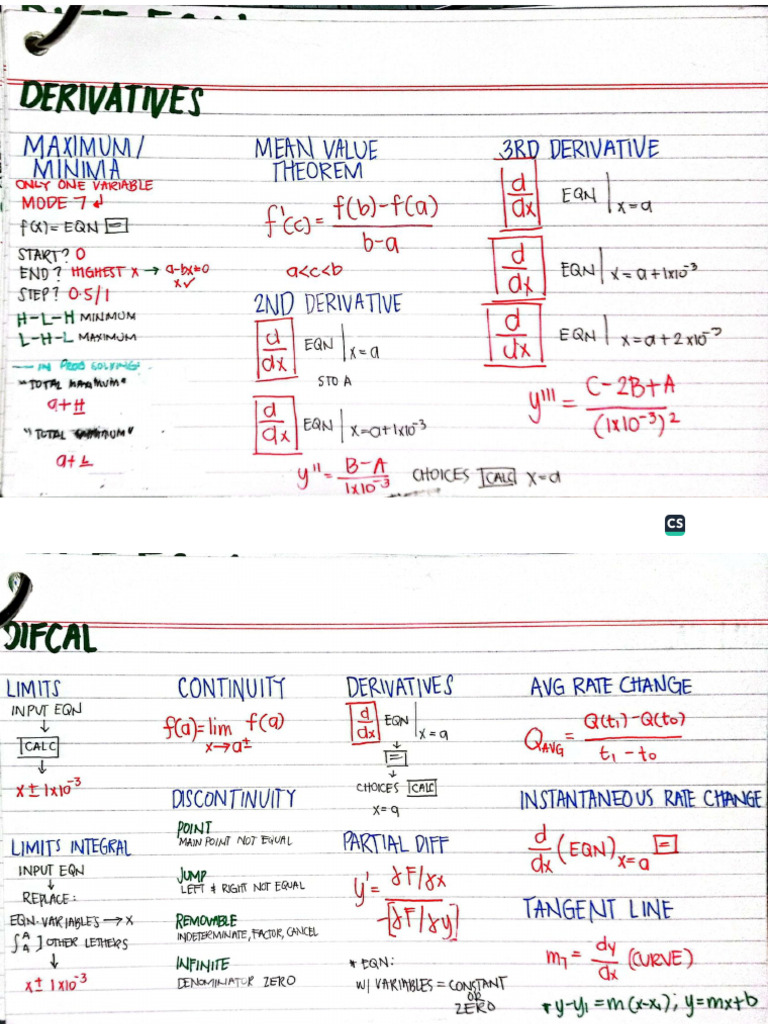 DERIVATIVES
MAXIMUM/
MINIMA
ONLY ONE VARIABLE
MODE 7 ↲
f(x)=EQN [=]
START? 0
END? HIGHEST x → a-bx=0
x✓
STEP? 0.5/1
H-L-H MINIMUM
L-H-L MAXIMUM
IN PROB SOLVING:
"TOTAL MAXIMUM"
a+H
"TOTAL MINIMUM"
a+L
MEAN VALUE
THEOREM
f'(c) = f(b)-f(a) / b-a
a<c<b
2ND DERIVATIVE
d/dx EQN | x=a
STO A
d/dx EQN | x=a+1x10⁻³
y'' = B-A / 1x10⁻³ CHOICES [CALC] x=a
3RD DERIVATIVE
d/dx EQN | x=a
d/dx EQN | x=a+1x10⁻³
d/dx EQN | x=a+2x10⁻³
y''' = C-2B+A / (1x10⁻³)²
CS
DIFCAL
LIMITS
INPUT EQN
↓
[CALC]
↓
x±1x10⁻³
LIMITS INTEGRAL
INPUT EQN
↓
REPLACE:
EQN. VARIABLES → x
∫ A A ] OTHER LETTERS
↓
x±1x10⁻³
CONTINUITY
f(a)=lim f(a)
x→a±
DISCONTINUITY
POINT
MAIN POINT NOT EQUAL
JUMP
LEFT & RIGHT NOT EQUAL
REMOVABLE
INDETERMINATE, FACTOR, CANCEL
INFINITE
DENOMINATOR ZERO
DERIVATIVES
d/dx EQN | x=a
↓
[=]
↓
CHOICES [CALC]
x=a
PARTIAL DIFF
y' = ɣF/ɣx / -[ɣF/ɣy]
* EQN:
W/ VARIABLES = CONSTANT
OR
ZERO
AVG RATE CHANGE
Q AVG = Q(t₁)-Q(t₀) / t₁-t₀
INSTANTANEOUS RATE CHANGE
d/dx (EQN) x=a [=]
TANGENT LINE
m₇ = dy/dx (CURVE)
* y-y₁=m(x-x₁); y=mx+b